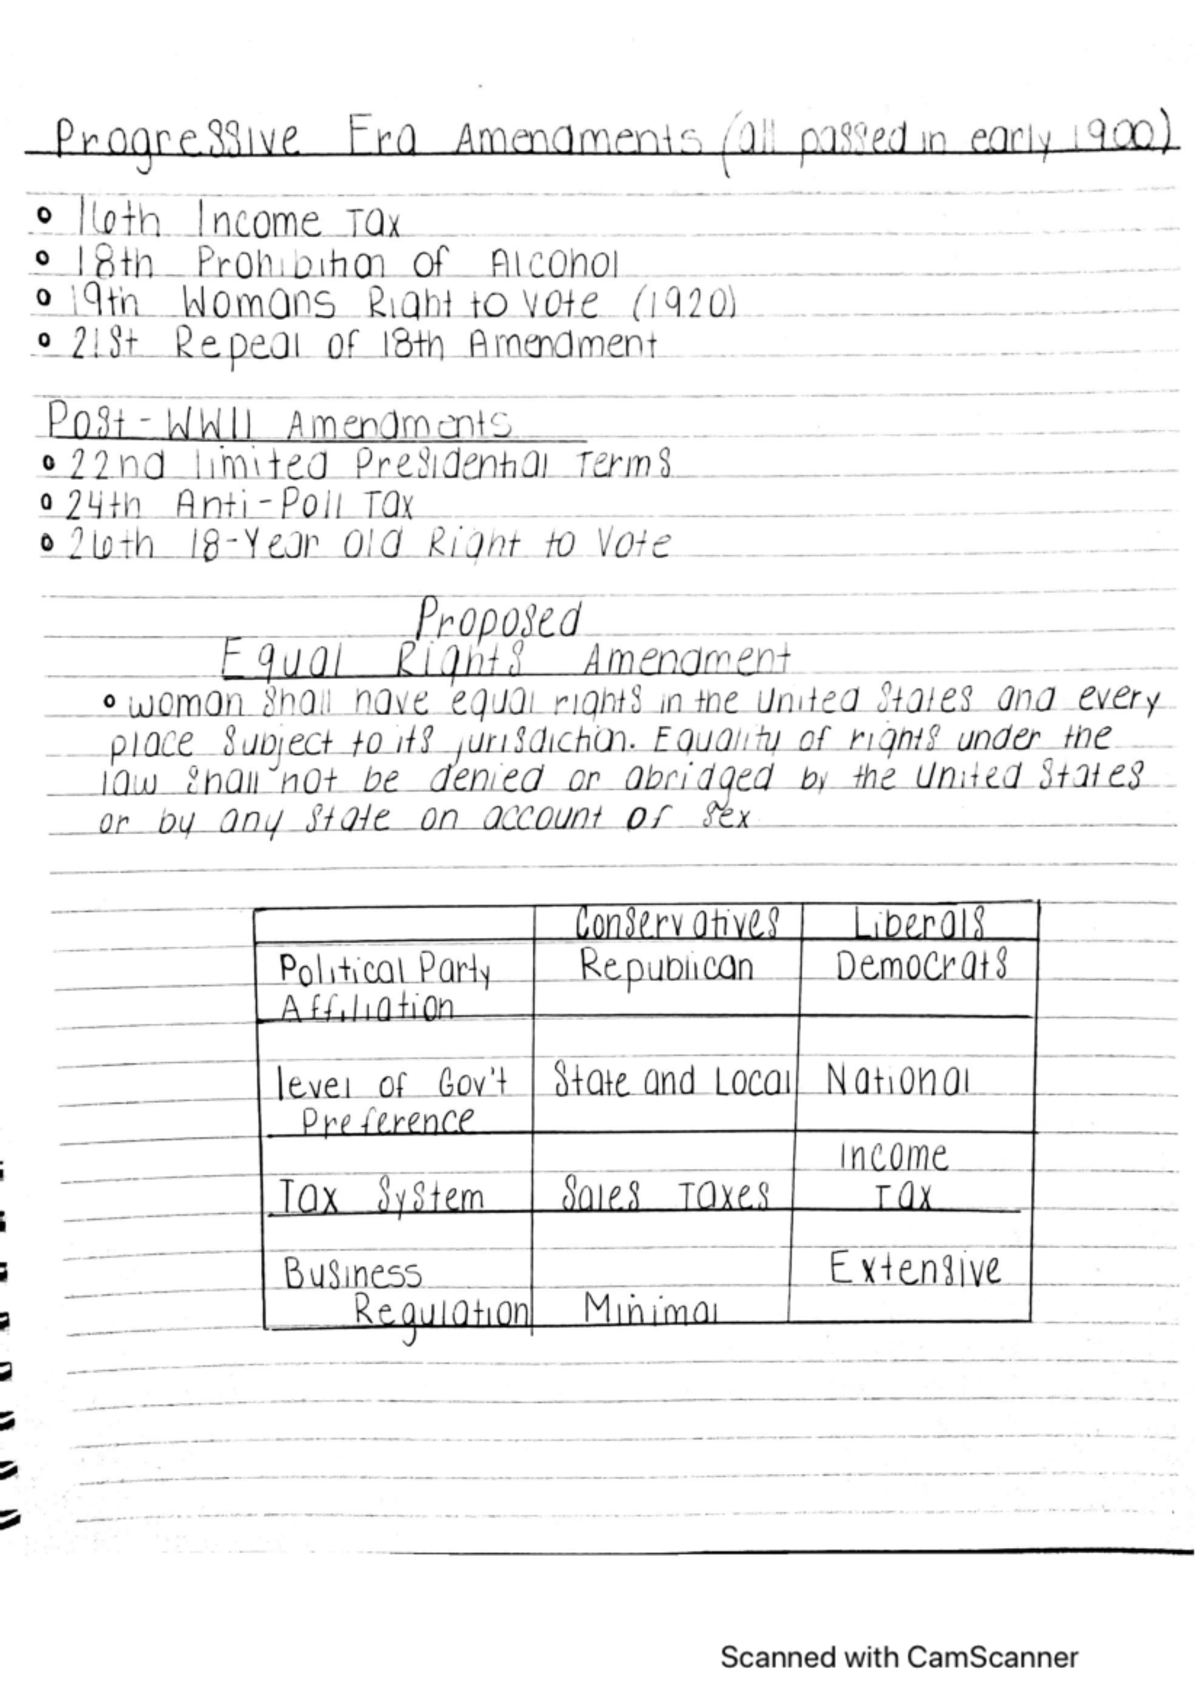 Progressive Era Amendments (all passed in early 1900)
16th Income Tax
18th Prohibition of Alcohol
19th Womans Right to vote (1920)
21st Repeal of 18th Amendment
Post-WWII Amendments
22nd limited Presidential Terms
24th Anti-Poll Tax
26th 18-Year Old Right to Vote
Proposed
Equal Rights Amendment
woman shall have equal rights in the United States and every
place subject to its jurisdiction. Equality of rights under the
law shall not be denied or abridged by the United States
or by any State on account of sex
Conservatives Liberals
Political Party Republican Democrats
Affiliation
level of Gov't State and Local National
Preference
Income
Tax System Sales Taxes Tax
Business Extensive
Regulation Minimal
Scanned with CamScanner